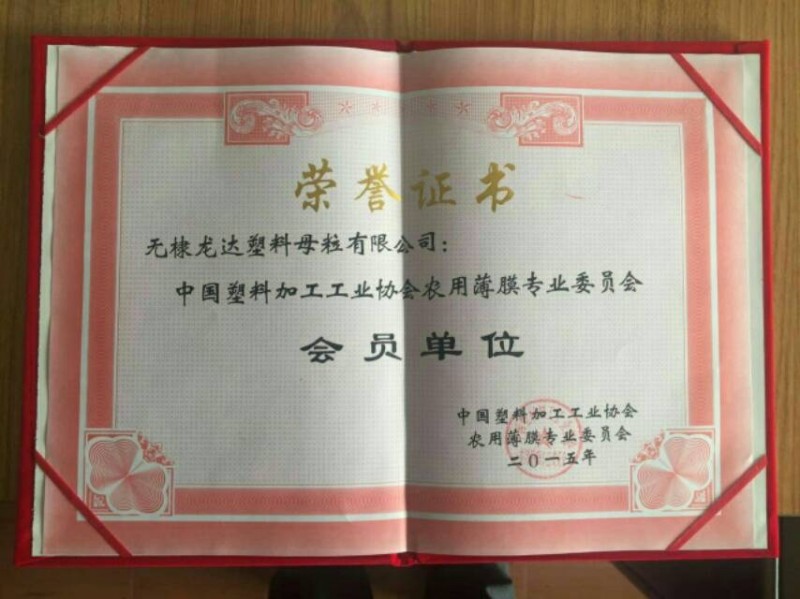 荣誉证书
无棣龙达塑料母粒有限公司：
中国塑料加工工业协会农用薄膜专业委员会
会员单位
中国塑料加工工业协会
农用薄膜专业委员会
二〇一五年